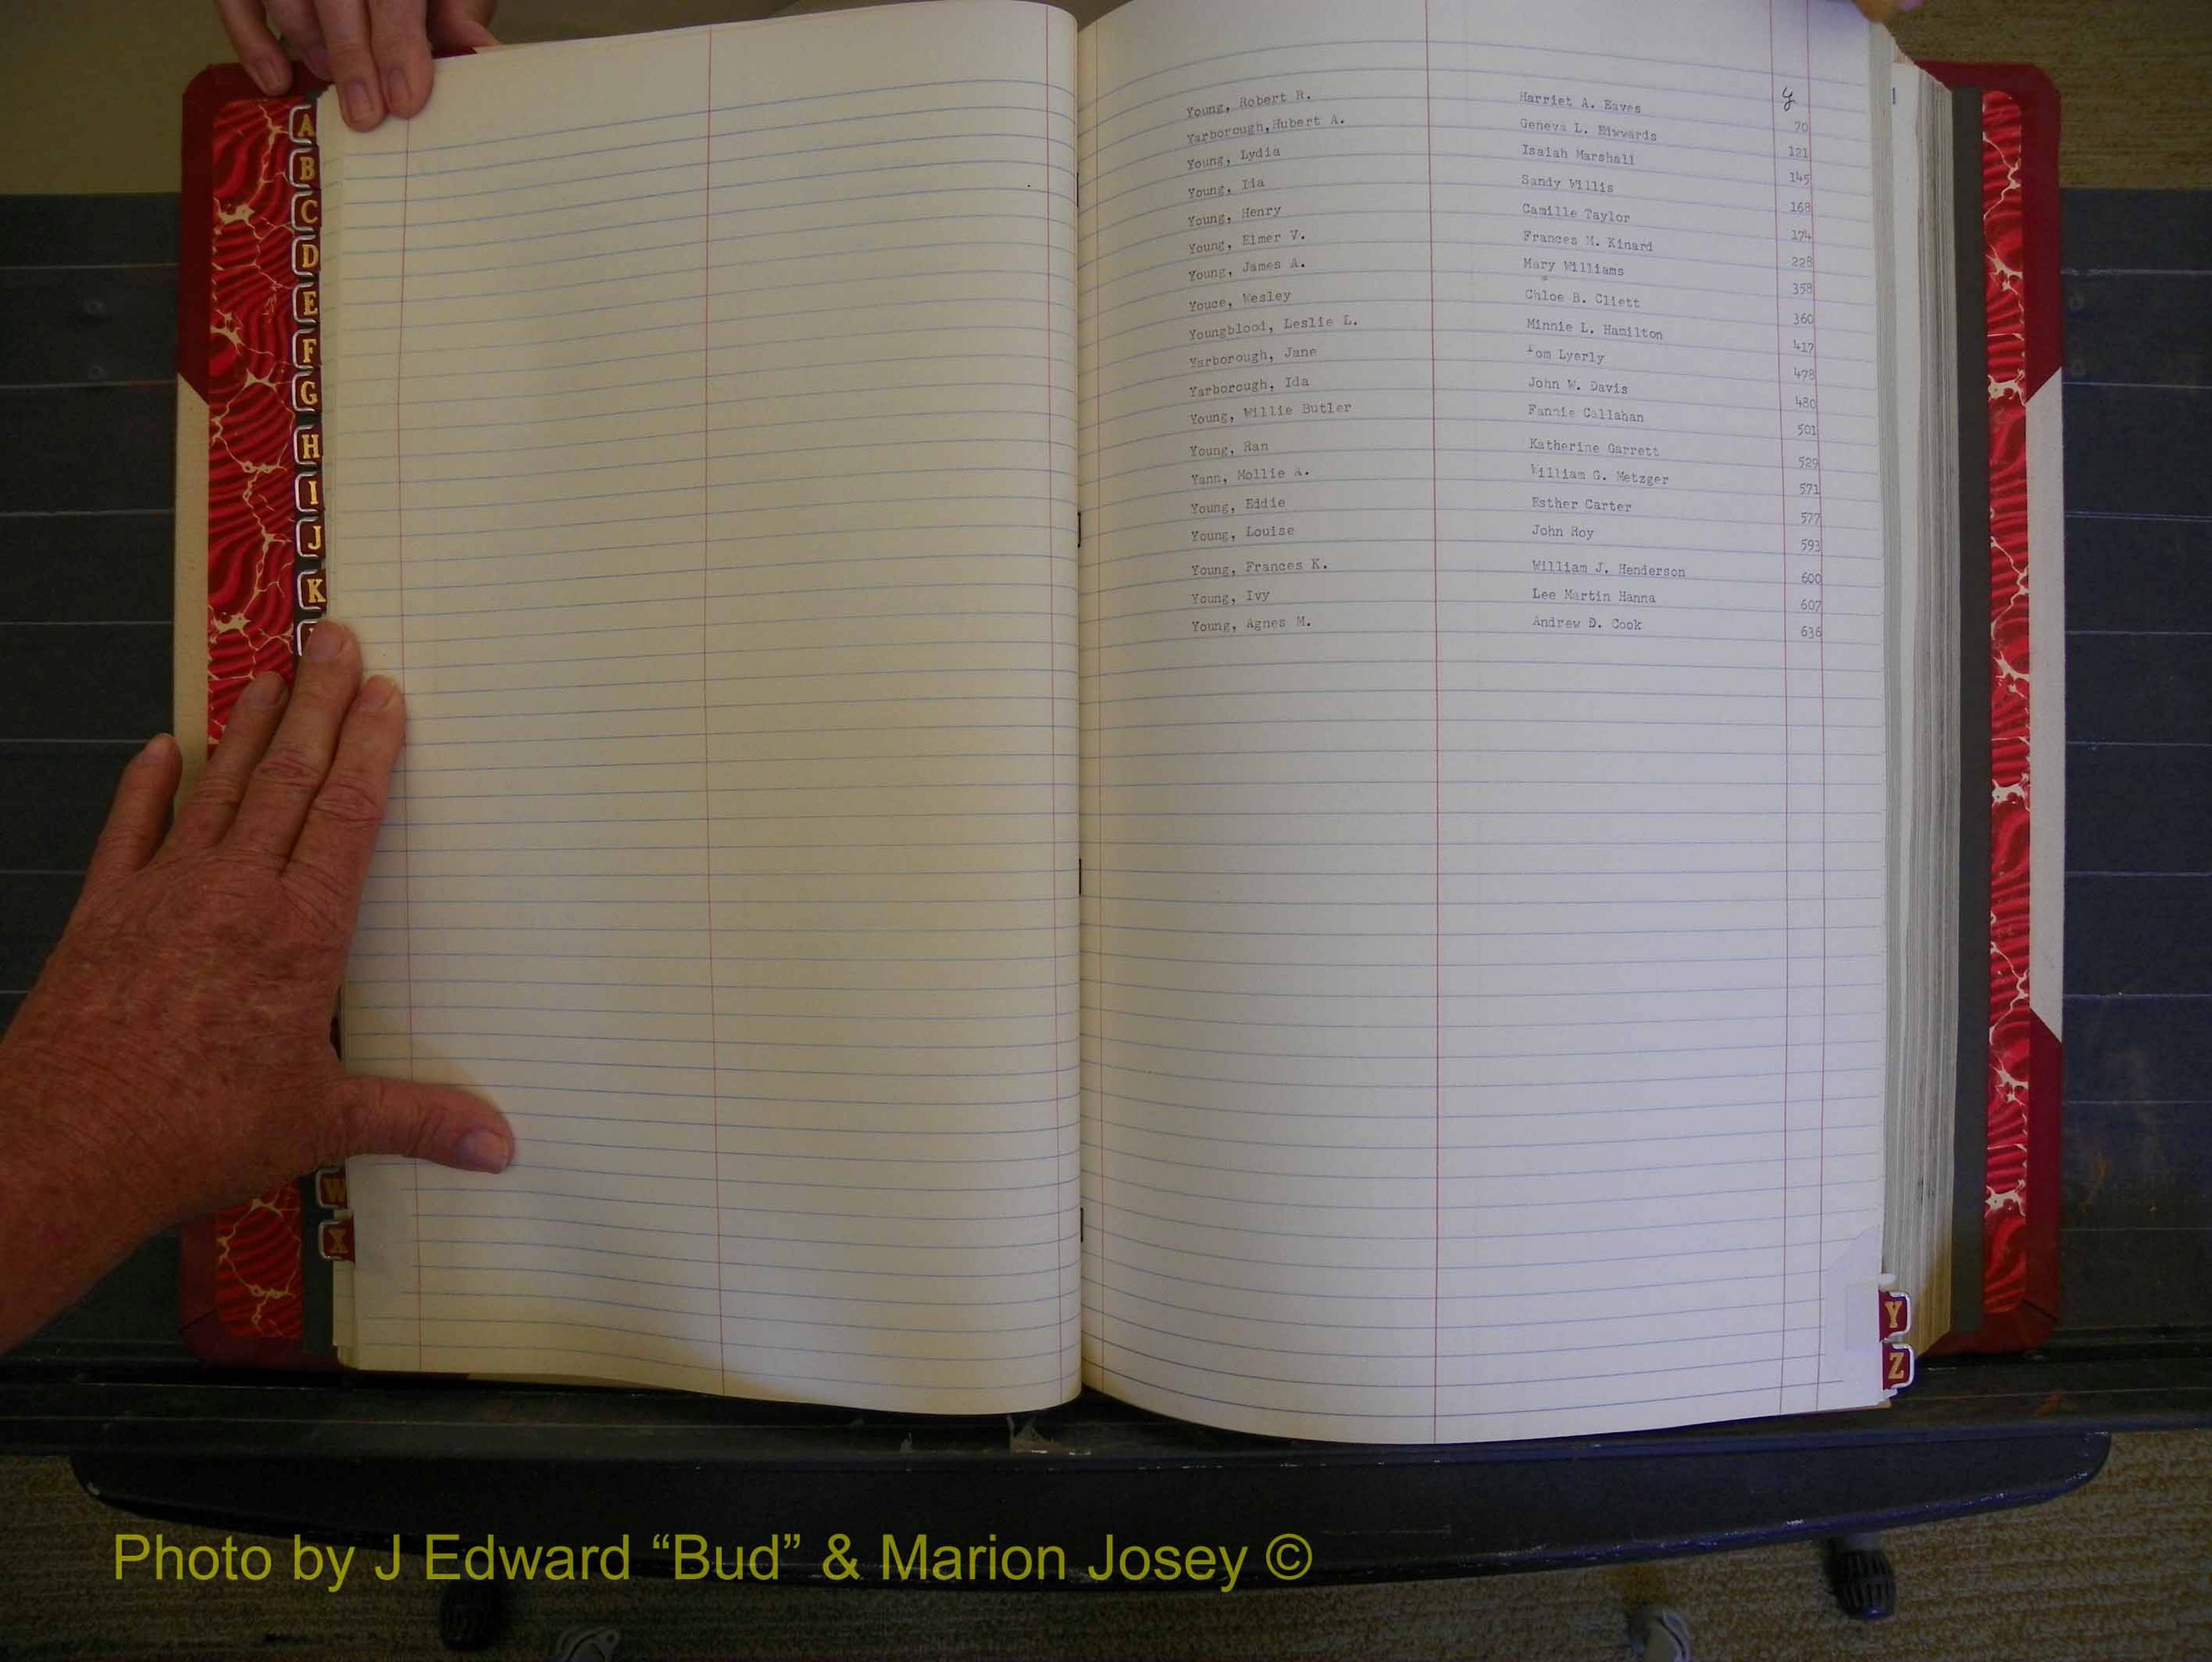 A
B
C
D
E
F
G
H
I
J
K
W
X
y
Young, Robert R. Harriet A. Eaves 70
Yarborough, Hubert A. Geneva L. 121
Young, Lydia Isaiah Marshall 145
Young, Sandy Willis 168
Young, Henry Camille Taylor 174
Young, Elmer V. Frances M. Kinard 228
Young, James A. Mary Williams 358
Youce, Wesley Chloe B. Cliett 360
Youngblood, Leslie L. Minnie L. Hamilton 417
Yarborough, Jane Tom Lyerly 478
Yarborough, Ida John W. Davis 480
Young, Willie Butler Fannie Callahan 501
Young, Ran Katherine Garrett 529
Yann, Mollie A. William G. Metzger 571
Young, Eddie Esther Carter 577
Young, Louise John Roy 593
Young, Frances K. William J. Henderson 600
Young, Ivy Lee Martin Hanna 607
Young, Agnes M. Andrew D. Cook 636
1
Y
Z
Photo by J Edward “Bud” & Marion Josey ©